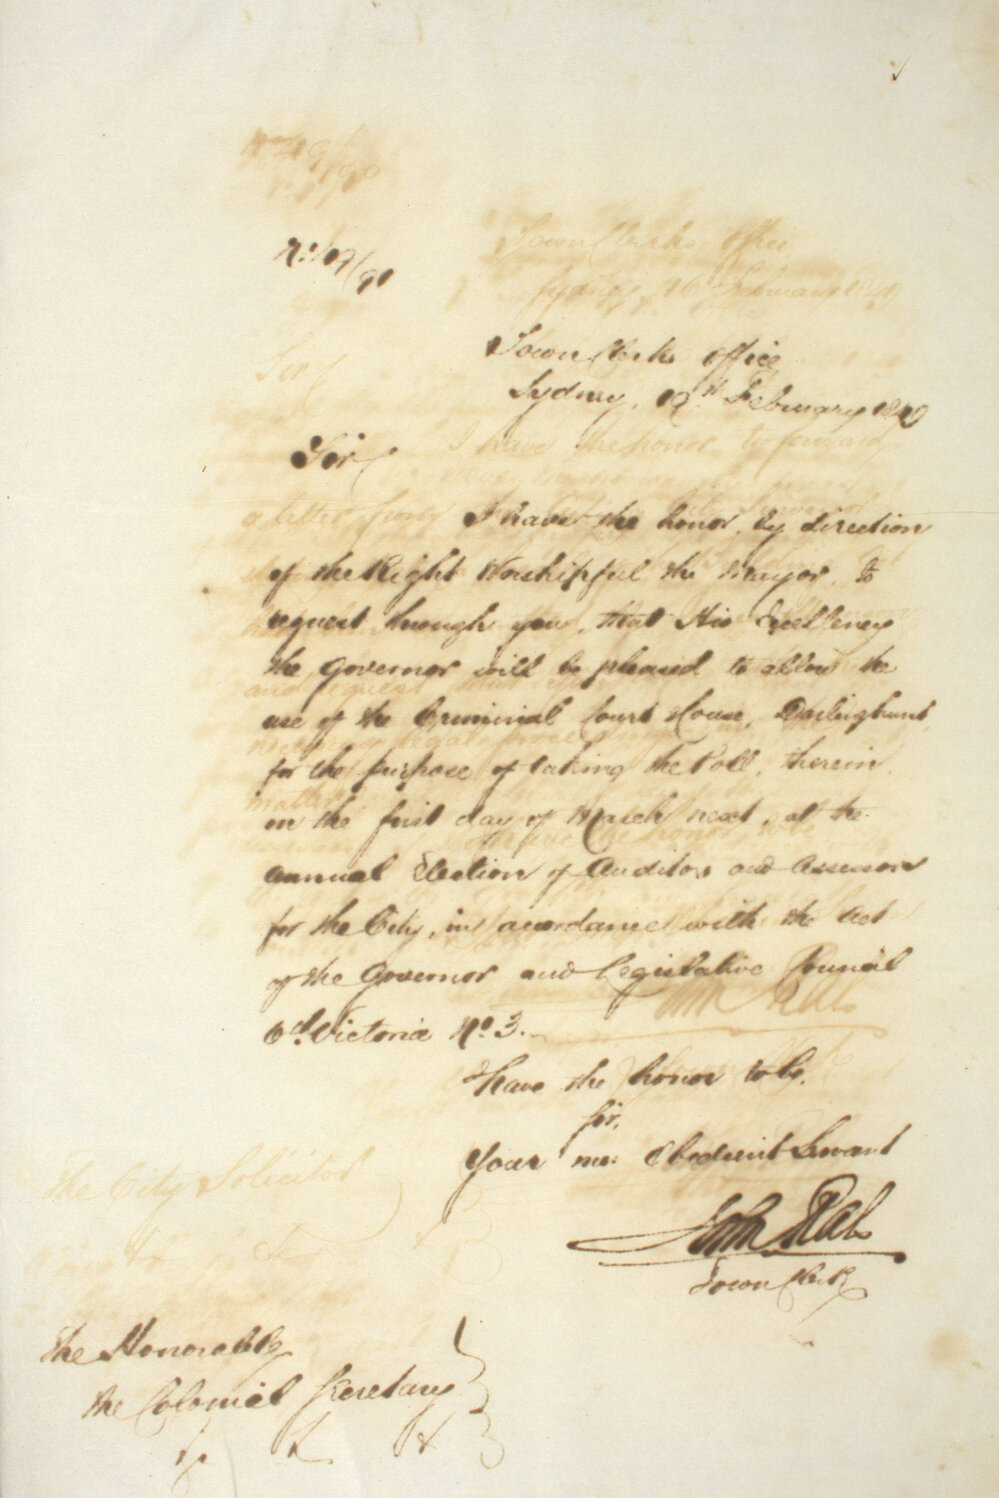 No. 49/91
Town Clerks Office
Sydney, 19th February 1849
Sir
I have the honor, by direction
of the Right Worshipful the Mayor, to
request through you, that His Excellency
the Governor will be pleased to allow the
use of the Criminal Court House, Darlinghurst,
for the purpose of taking the Poll, therein,
on the first day of March next, at the
annual Election of Auditors and Assessors
for the City, in accordance with the Act
of the Governor and Legislative Council
6th Victoria No. 3.
I have the honor to be,
Sir,
Your mo: Obedient Servant
John Rae
Town Clerk
The Honorable
the Colonial Secretary
&c &c &c
The City Solicitor